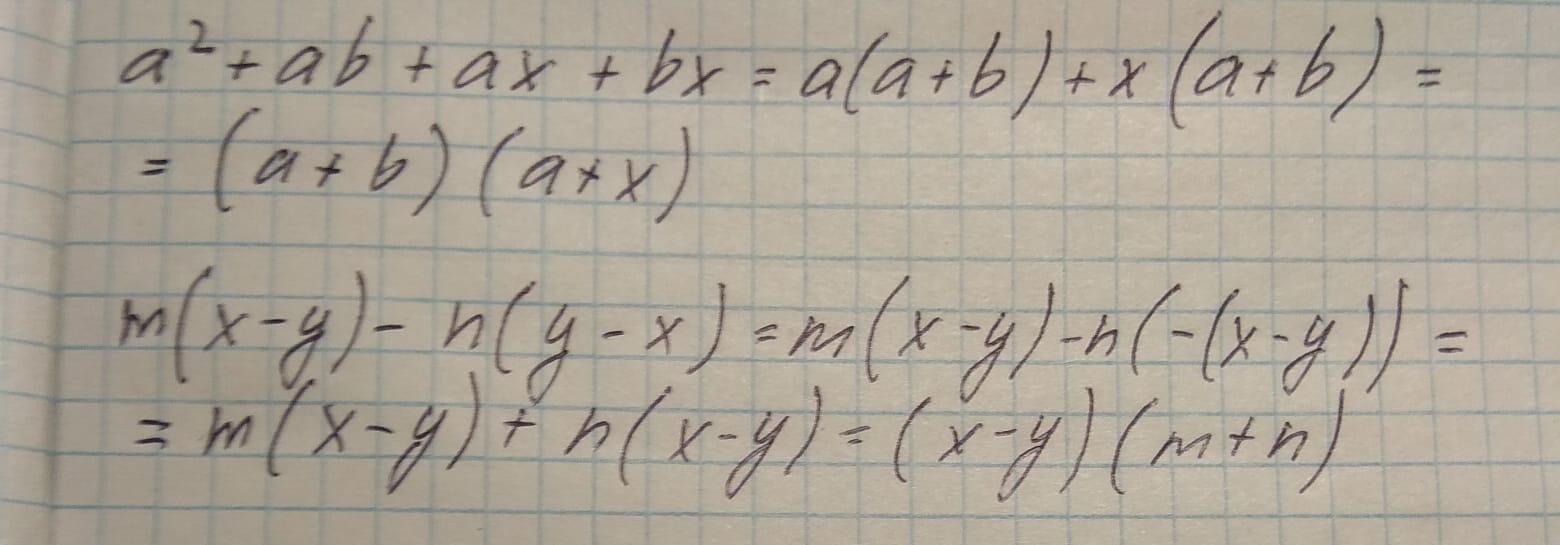 a² + ab + ax + bx = a(a+b) + x(a+b) =
= (a+b)(a+x)
m(x-y) - n(y-x) = m(x-y) - n(-(x-y)) =
= m(x-y) + n(x-y) = (x-y)(m+n)